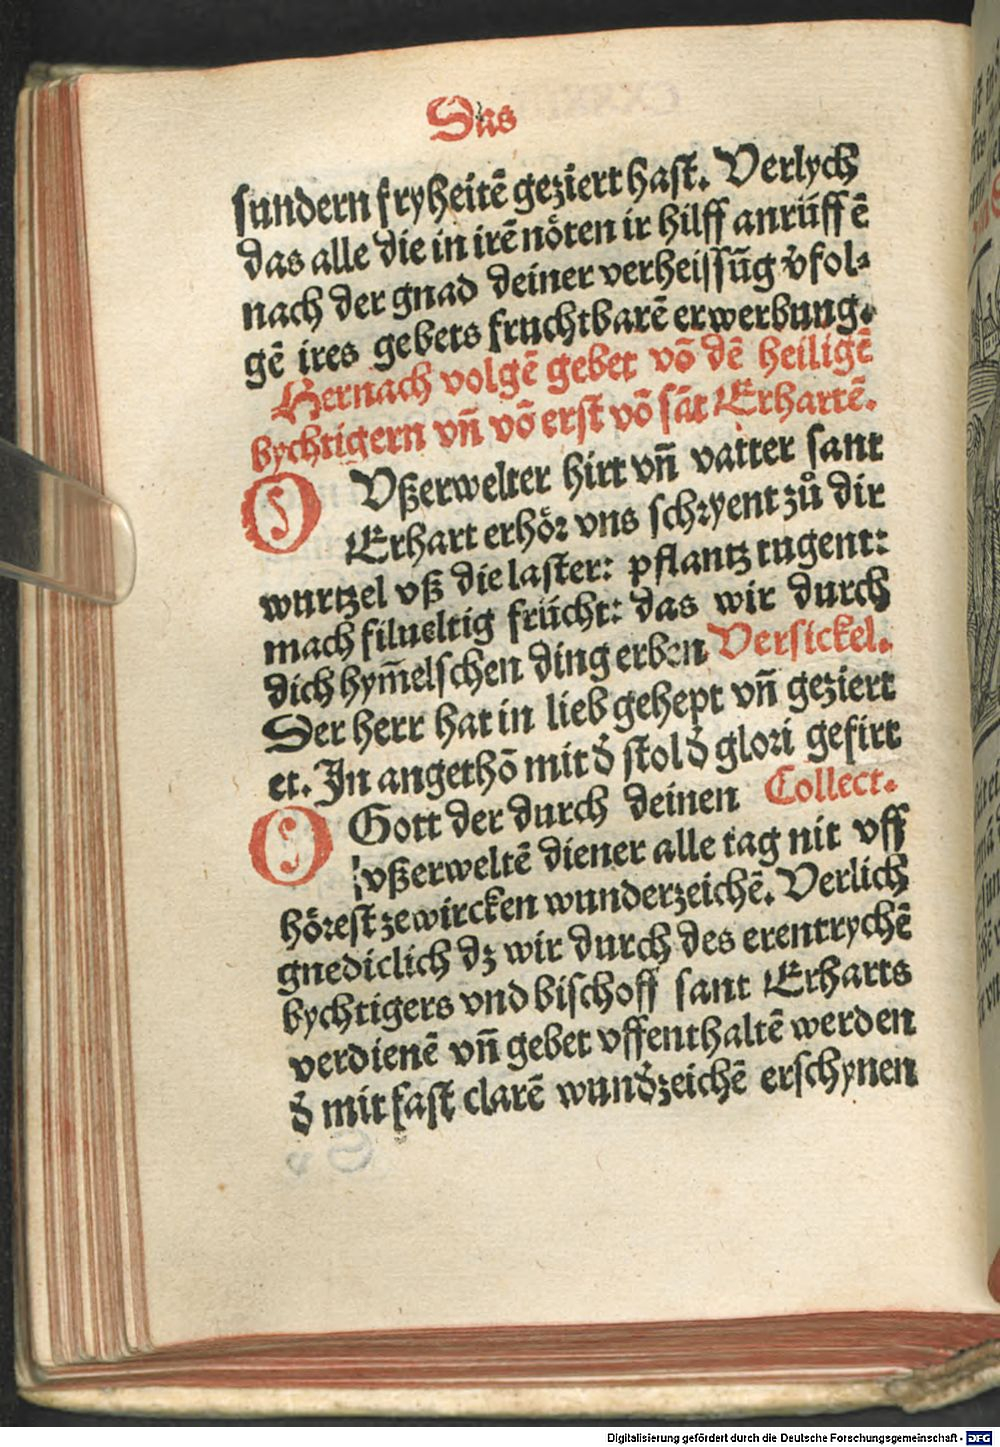 Das
sundern fryheitē geziert hast. Verlych
das alle die in irē nöten ir hilff anrüff ē
nach der gnad deiner verheissūg v̄fol⸗
gē ires gebets fruchtbarē erwerbung.
Hernach volgē gebet vō dē heiligē
bychtigern vñ vō erst vō sāt Erhartē.
O Vßerwelter hirt vñ vatter sant
Erhart erhöꝛ vns schꝛyent zů dir
wurtzel vß die laster: pflantz tugent:
mach filueltig frücht: das wir durch
dich hym̄elschen ding erben Versickel.
Der herr hat in lieb gehept vñ geziert
et. In angethō mit d̄ stol d̄ gloꝛi gefirt
O Gott der durch deinen Collect.
vßerweltē diener alle tag nit vff
höꝛest ze wircken wunderzeichē. Verlich
gnediclich dz wir durch des erentrychē
bychtigers vnd bischoff sant Erharts
verdienē vñ gebet vffenthaltē werden
d̄ mit fast clarē wund̄zeichē erschynen
Digitalisierung gefördert durch die Deutsche Forschungsgemeinschaft - DFG